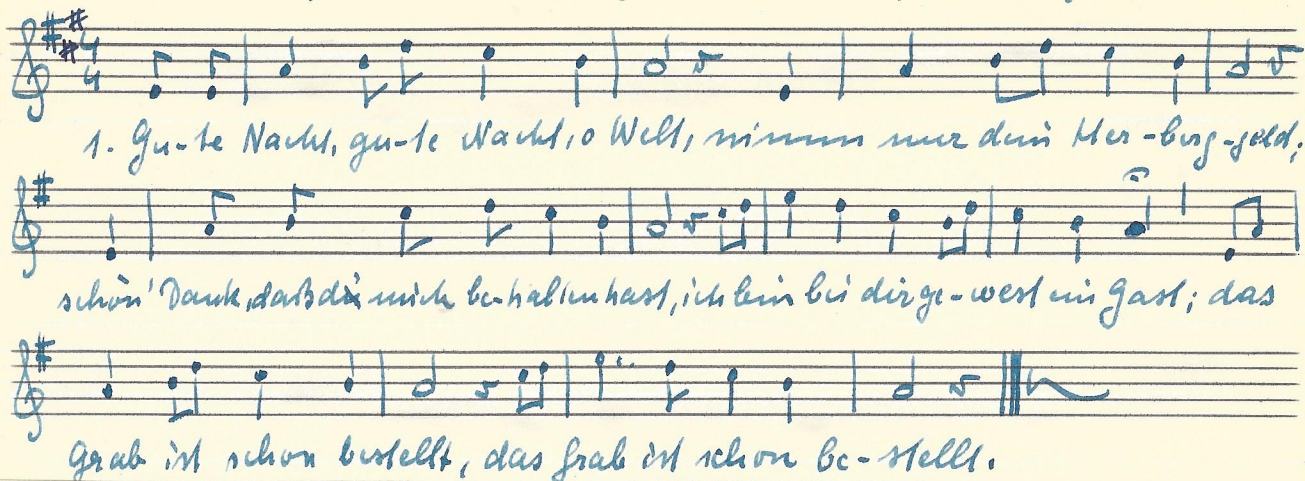 4 4
1. Gu-te Nacht, gu-te Nacht, o Welt, nimm nur dein Her-berg-geld;
schön' Dank, daß du mich be-halten hast, ich bin bei dir ge-west ein Gast; das
Grab ist schon bestellt, das Grab ist schon be-stellt.